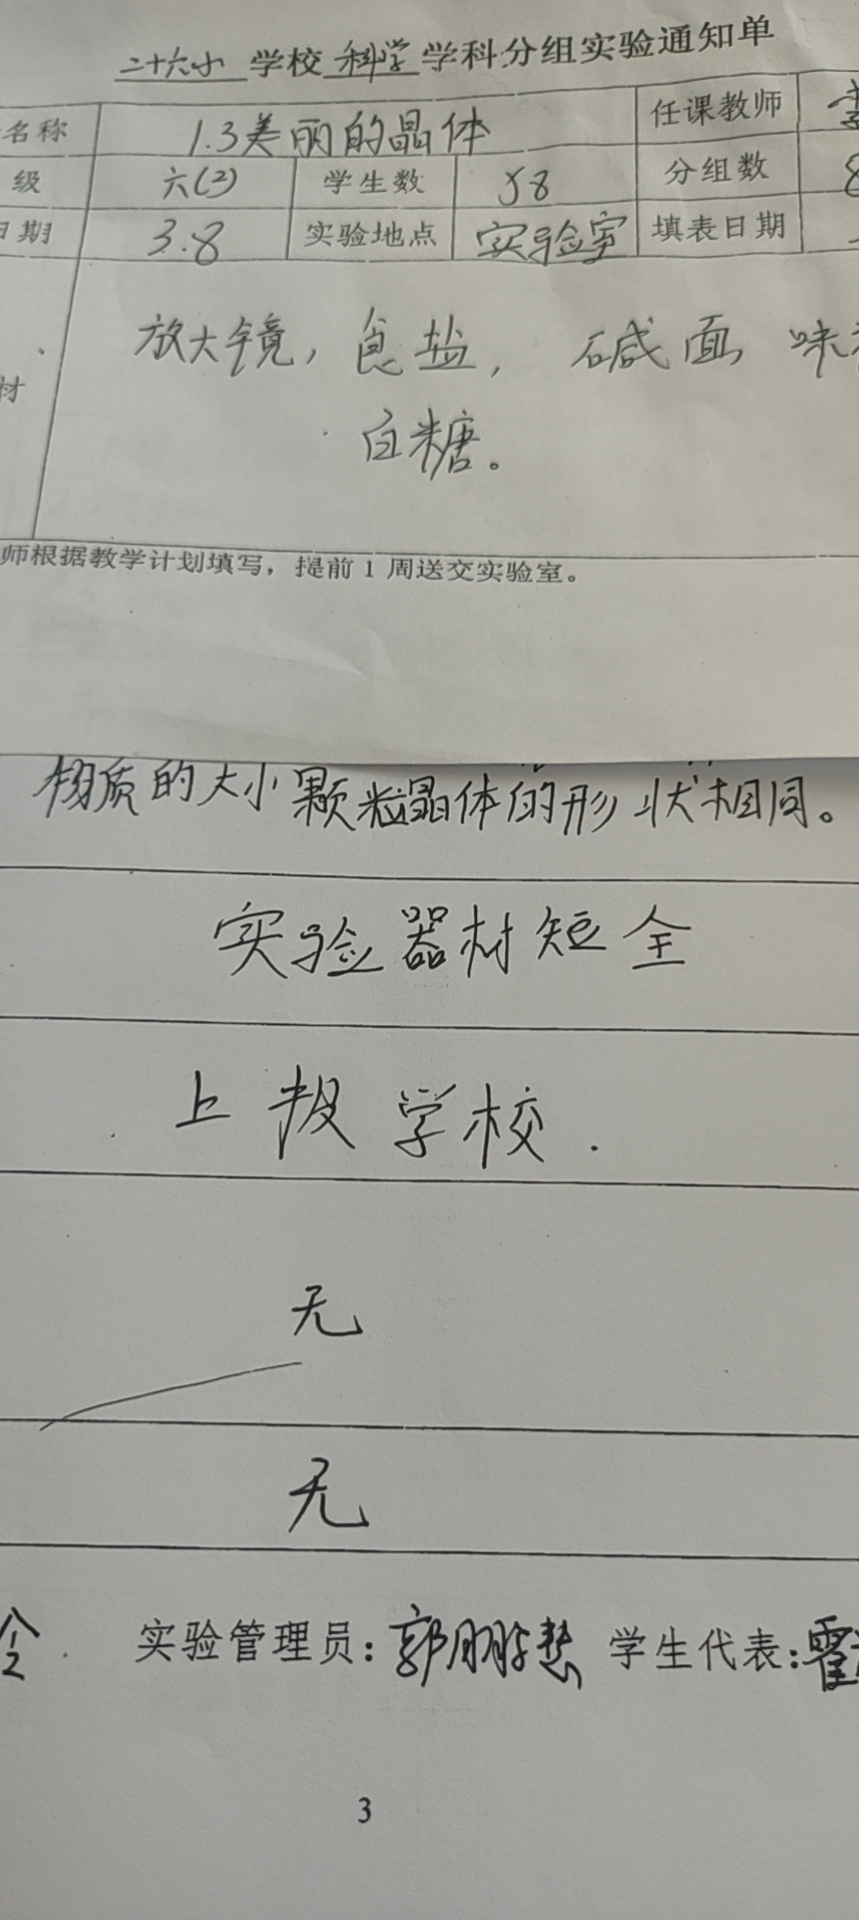 二十六小 学校 科学 学科分组实验通知单
名称 1.3美丽的晶体 任课教师
级 六(2) 学生数 58 分组数 8
日期 3.8 实验地点 实验室 填表日期
放大镜，食盐， 碱面 味
材
白糖。
师根据教学计划填写，提前 1 周送交实验室。
物质的大小颗粒晶体的形状相同。
实验器材短全
上报学校.
无
无
实验管理员：郭鹏慧 学生代表：霍
3